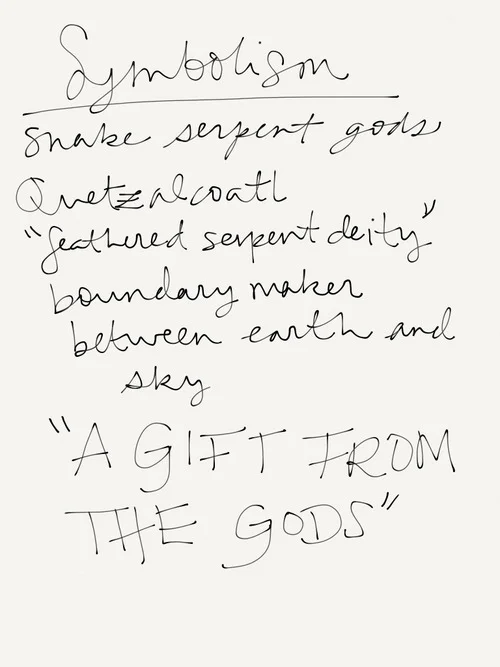 Symbolism
Snake serpent gods
Quetzalcoatl
"feathered serpent deity"
boundary maker
between earth and
sky
"A GIFT FROM
THE GODS"